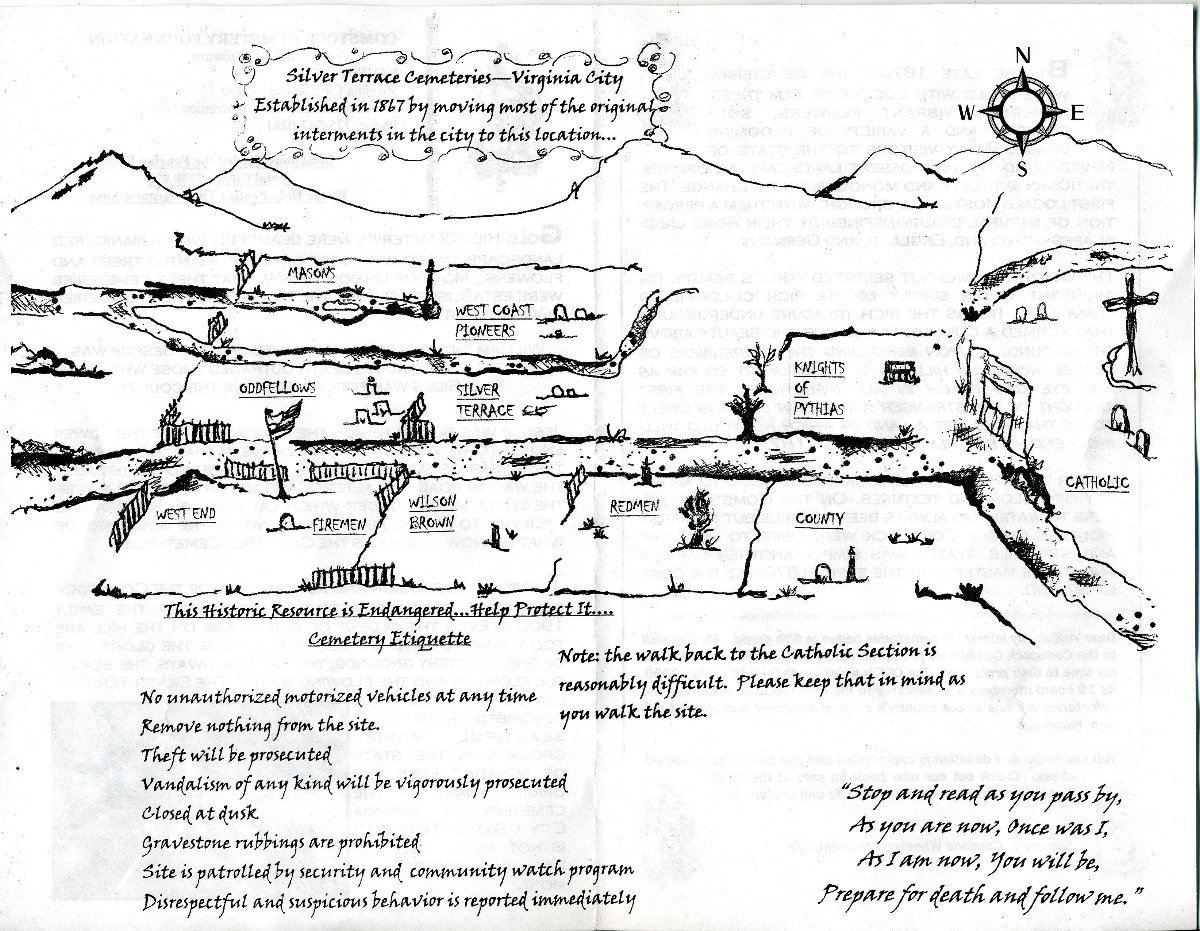 Silver Terrace Cemeteries—Virginia City
Established in 1867 by moving most of the original
interments in the city to this location...
N
W E
S
MASONS
WEST COAST
PIONEERS
ODDFELLOWS
SILVER
TERRACE
KNIGHTS
of
PYTHIAS
WEST END
FIREMEN
WILSON
BROWN
REDMEN
COUNTY
CATHOLIC
This Historic Resource is Endangered...Help Protect It....
Cemetery Etiquette
Note: the walk back to the Catholic Section is
reasonably difficult. Please keep that in mind as
you walk the site.
No unauthorized motorized vehicles at any time
Remove nothing from the site.
Theft will be prosecuted
Vandalism of any kind will be vigorously prosecuted
Closed at dusk
Gravestone rubbings are prohibited
Site is patrolled by security and community watch program
Disrespectful and suspicious behavior is reported immediately
“Stop and read as you pass by,
As you are now, Once was I,
As I am now, You will be,
Prepare for death and follow me.”